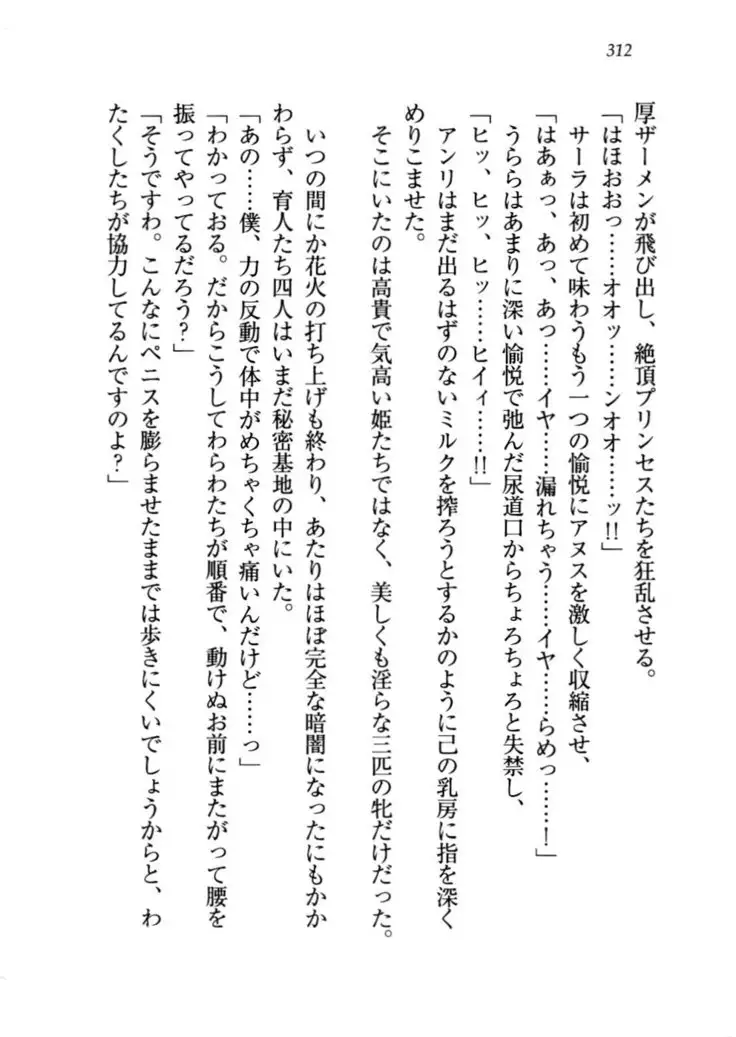 312
厚ザーメンが飛び出し、絶頂プリンセスたちを狂乱させる。
「はほおおっ……オオッ……ンオオ……ッ!!」
サーラは初めて味わうもう一つの愉悦にアヌスを激しく収縮させ、
「はあぁっ、あっ、あっ……イヤ……漏れちゃう……イヤ……らめっ……！」
うららはあまりに深い愉悦で弛んだ尿道口からちょろちょろと失禁し、
「ヒッ、ヒッ、ヒッ……ヒイィ……!!」
アンリはまだ出るはずのないミルクを搾ろうとするかのように己の乳房に指を深く
めりこませた。
そこにいたのは高貴で気高い姫たちではなく、美しくも淫らな三匹の牝だけだった。
いつの間にか花火の打ち上げも終わり、あたりはほぼ完全な暗闇になったにもかか
わらず、育人たち四人はいまだ秘密基地の中にいた。
「あの……僕、力の反動で体中がめちゃくちゃ痛いんだけど……っ」
「わかっておる。だからこうしてわらわたちが順番で、動けぬお前にまたがって腰を
振ってやってるだろう？」
「そうですわ。こんなにペニスを膨らませたままでは歩きにくいでしょうからと、わ
たくしたちが協力してるんですのよ？」